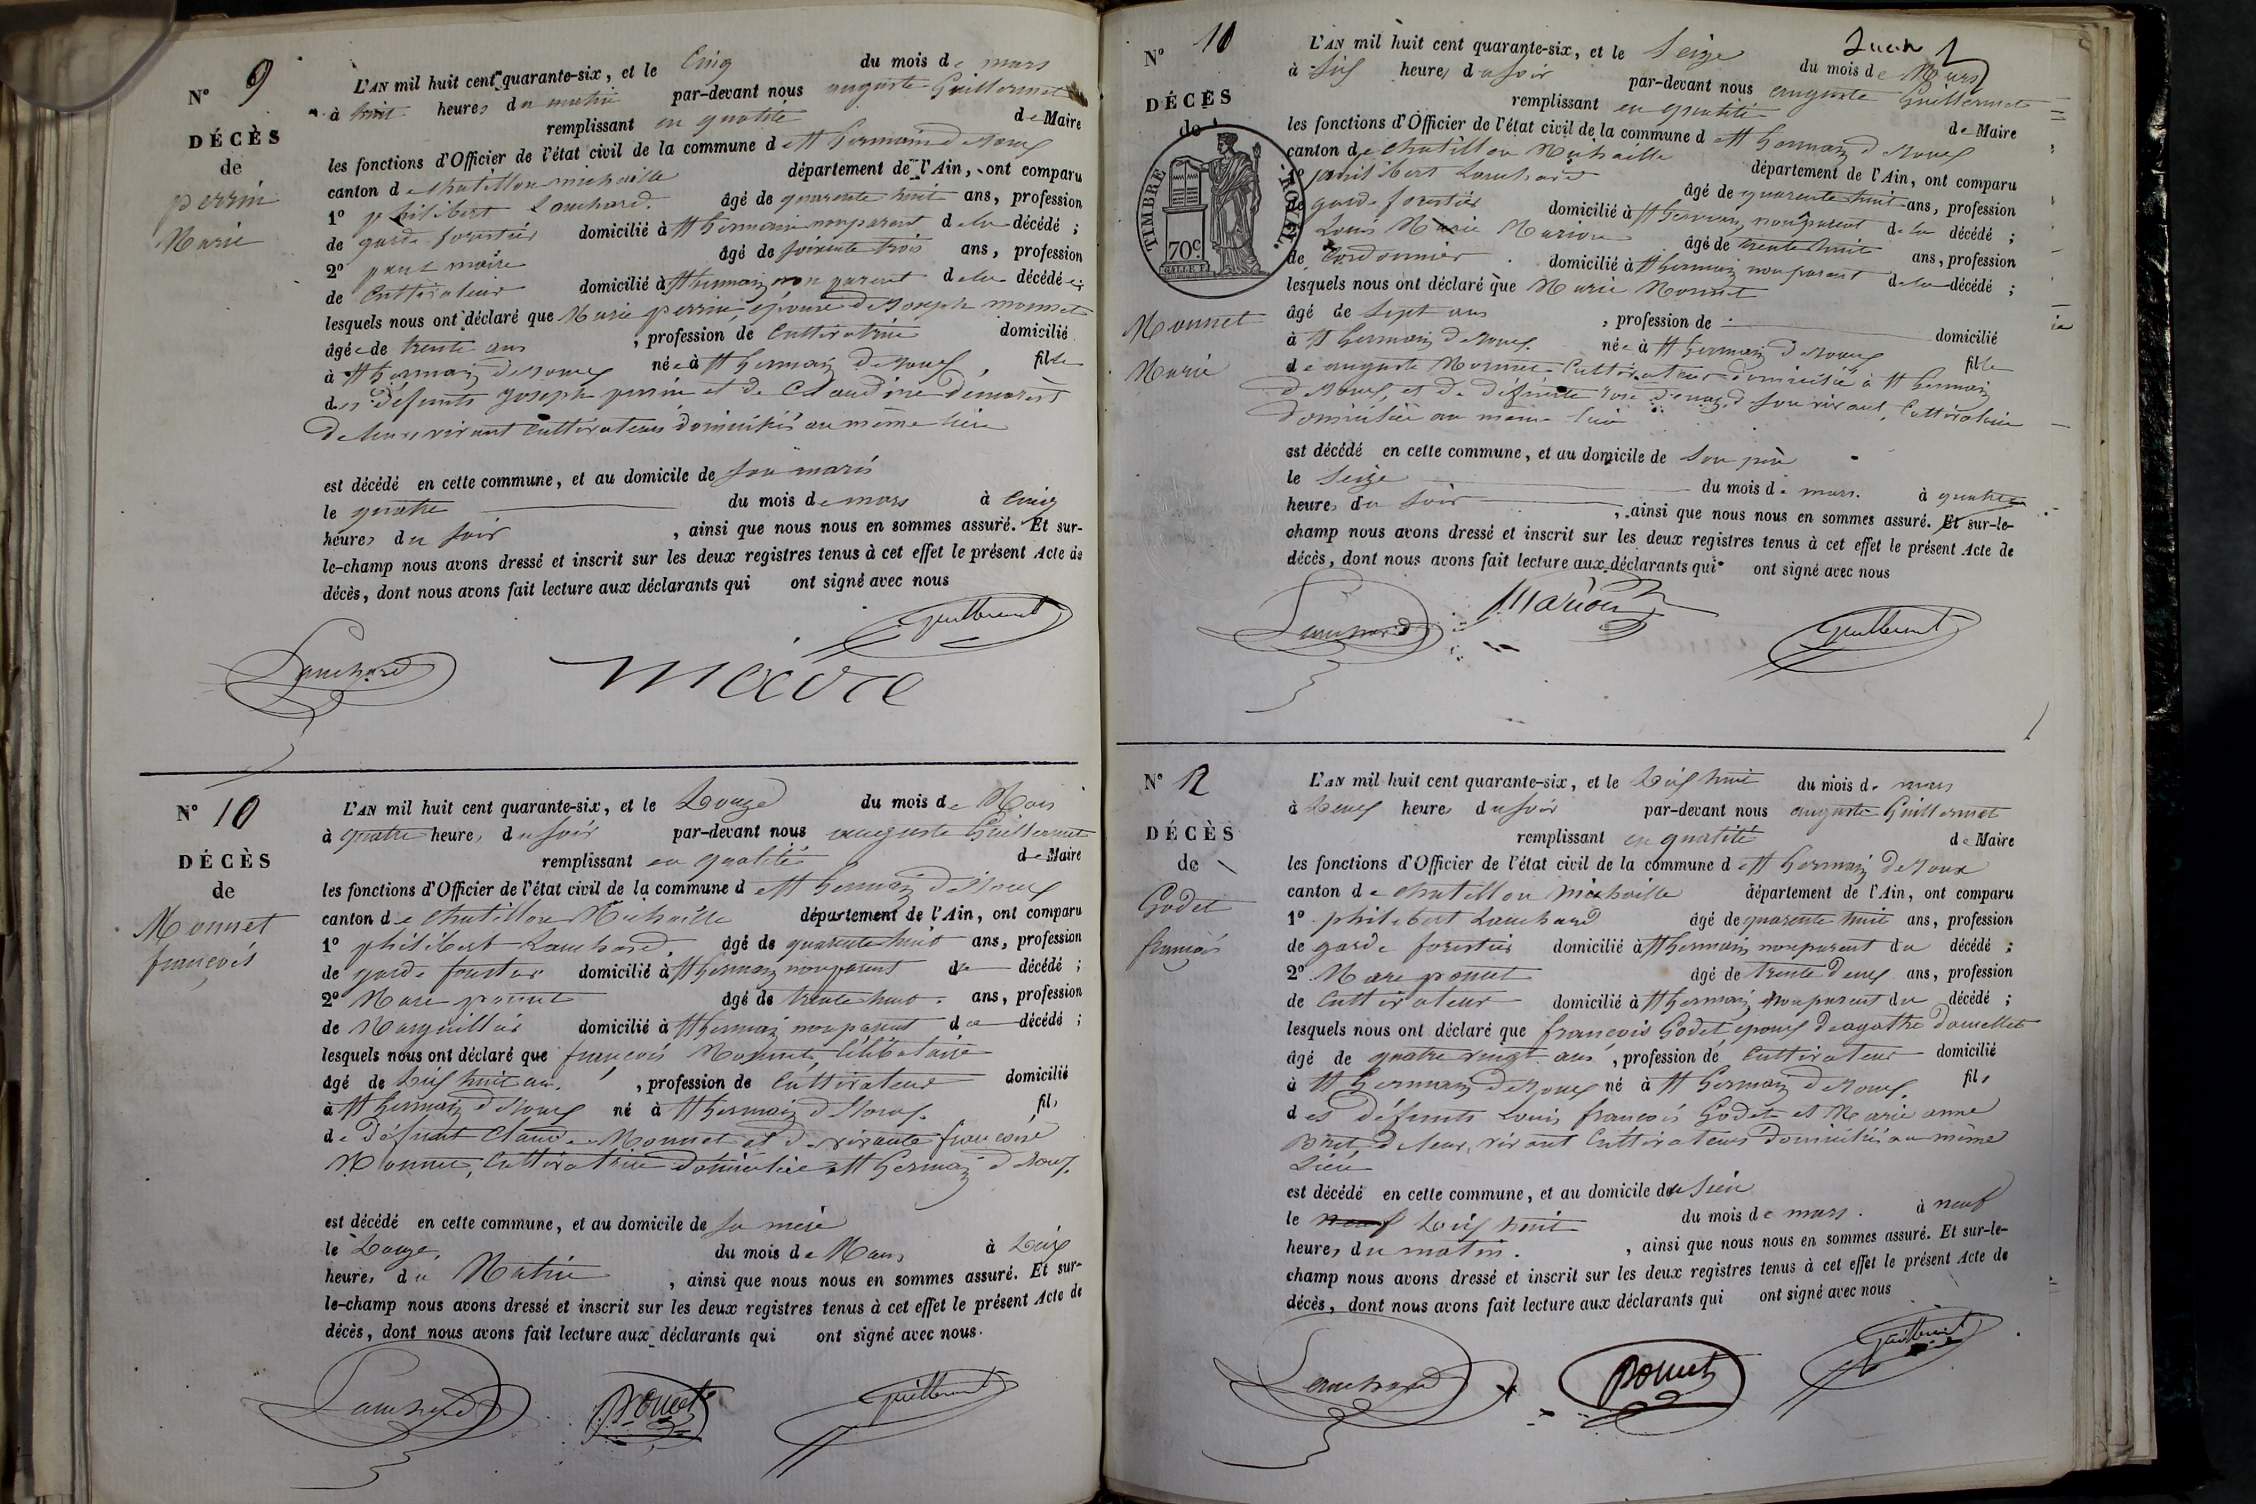 N° 9
DÉCÈS
de
perrin
Marie
L'AN mil huit cent quarante-six, et le Cinq du mois de mars
à huit heures du matin par-devant nous auguste Guillermet
remplissant en qualité de Maire
les fonctions d'Officier de l'état civil de la commune de St Germain de Joux
canton de chatillon michaille département de l'Ain, ont comparu
1° philibert Lauchard âgé de quarante huit ans, profession
de garde forestier domicilié à St Germain non parent de la décédé ;
2° maire âgé de soixante trois ans, profession
de Cultivateur domicilié à St Germain non parent de la décédée ;
lesquels nous ont déclaré que Marie perrin, épouse de Joseph monnet
âgée de trente ans , profession de Cultivatrice domicilié
à St Germain de Joux née à St Germain de Joux fille
des défunts Joseph perrin et de Claudine
de leur vivant Cultivateurs domiciliés au même lieu
est décédé en cette commune, et au domicile de son mari
le quatre du mois de mars à Cinq
heures du soir , ainsi que nous nous en sommes assuré. Et sur-
le-champ nous avons dressé et inscrit sur les deux registres tenus à cet effet le présent Acte de
décès, dont nous avons fait lecture aux déclarants qui ont signé avec nous
Guillermet
Lauchard
N° 10
DÉCÈS
de
Monnet
françois
L'AN mil huit cent quarante-six, et le Douze du mois de Mars
à quatre heures du soir par-devant nous auguste Guillermet
remplissant en qualité de Maire
les fonctions d'Officier de l'état civil de la commune de St Germain de Joux
canton de Chatillon Michaille département de l'Ain, ont comparu
1° philibert Lauchard, âgé de quarante huit ans, profession
de garde domicilié à St Germain non parent du décédé ;
2° Marc poncet âgé de trente ans, profession
de Marguillier domicilié à St Germain non parent du décédé ;
lesquels nous ont déclaré que françois Monnet, Célibataire
âgé de Dix huit ans , profession de Cultivateur domicilié
à St Germain de Joux né à St Germain de Joux fils
de Défunt Claude Monnet et de vivante françoise
Monnet, Cultivatrice domiciliée à St Germain de Joux
est décédé en cette commune, et au domicile de sa mère
le Douze du mois de Mars à Dix
heures du Matin , ainsi que nous nous en sommes assuré. Et sur-
le-champ nous avons dressé et inscrit sur les deux registres tenus à cet effet le présent Acte de
décès, dont nous avons fait lecture aux déclarants qui ont signé avec nous.
Lauchard Poncet Guillermet
N° 11
DÉCÈS
de
TIMBRE ROYAL.
70c
Monnet
Marie
L'AN mil huit cent quarante-six, et le Seize du mois de Mars
à Six heures du soir par-devant nous auguste Guillermet
remplissant en qualité de Maire
les fonctions d'Officier de l'état civil de la commune de St Germain de Joux
canton de chatillon Michaille département de l'Ain, ont comparu
philibert Lauchard âgé de quarante huit ans, profession
de garde forestier domicilié à St Germain non parent de la décédé ;
Louis Marie Marion âgé de trente huit ans, profession
de Cordonnier domicilié à St Germain non parent de la décédé ;
lesquels nous ont déclaré que Marie Monnet
âgé de sept ans , profession de domicilié
à St Germain de Joux née à St Germain de Joux fille
de auguste Monnet Cultivateur domicilié à St Germain
de Joux, et de défunte rose de son vivant, Cultivatrice
domiciliée au même lieu
est décédé en cette commune, et au domicile de son père
le Seize du mois de mars. à quatre
heures du soir , ainsi que nous nous en sommes assuré. Et sur-le-
champ nous avons dressé et inscrit sur les deux registres tenus à cet effet le présent Acte de
décès, dont nous avons fait lecture aux déclarants qui ont signé avec nous
Lauchard Marion Guillermet
N° 12
DÉCÈS
de
Godet
françois
L'AN mil huit cent quarante-six, et le Dix huit du mois de mars
à Deux heures du soir par-devant nous auguste Guillermet
remplissant en qualité de Maire
les fonctions d'Officier de l'état civil de la commune de St Germain de Joux
canton de chatillon michaille département de l'Ain, ont comparu
1° philibert Lauchard âgé de quarante huit ans, profession
de garde forestier domicilié à St Germain non parent du décédé ;
2° Marc poncet âgé de trente deux ans, profession
de Cultivateur domicilié à St Germain non parent du décédé ;
lesquels nous ont déclaré que françois Godet époux de agathe
âgé de quatre vingt ans , profession de Cultivateur domicilié
à St Germain de Joux né à St Germain de Joux fils
des défunts Louis françois Godet et Marie anne
de leur vivant Cultivateurs domiciliés au même
Lieu
est décédé en cette commune, et au domicile du sien
le neuf Dix huit du mois de mars. à neuf
heures du matin. , ainsi que nous nous en sommes assuré. Et sur-le-
champ nous avons dressé et inscrit sur les deux registres tenus à cet effet le présent Acte de
décès, dont nous avons fait lecture aux déclarants qui ont signé avec nous
Lauchard Poncet Guillermet